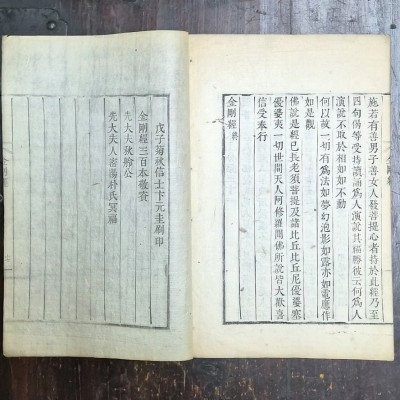 施若有善男子善女人發菩提心者持於此經乃至
四句偈等受持讀誦爲人演說其福勝彼云何爲人
演說不取於相如如不動
何以故一切有爲法如夢幻泡影如露亦如電應作
如是觀
佛說是經已長老須菩提及諸比丘比丘尼優婆塞
優婆夷一切世間天人阿修羅聞佛所說皆大歡喜
信受奉行
金剛經終
戊子菊秋信士卞元圭刷印
金剛經三百本敬賫
先大夫秋舲公
先大夫人密陽朴氏冥福